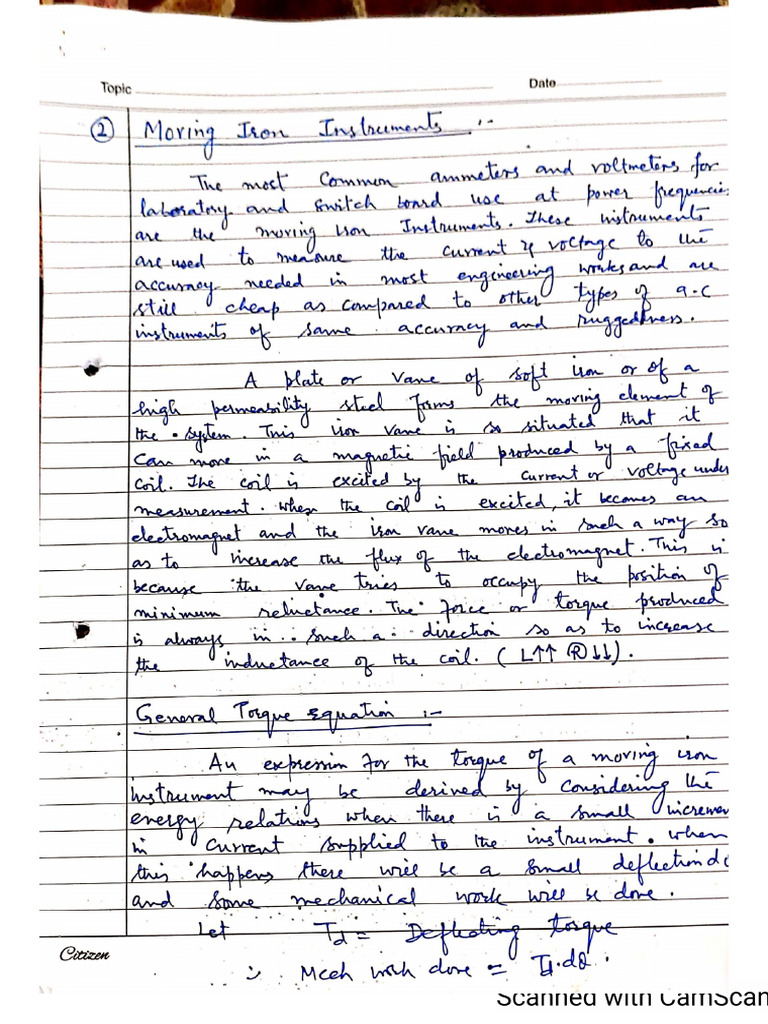 Topic Date
② Moving Iron Instruments :-
The most Common ammeters and voltmeters for
laboratory and switch board use at power frequencies
are the moving Iron Instruments. These instruments
are used to measure the current & voltage to the
accuracy needed in most engineering works and are
still cheap as compared to other types of a.c
instruments of same accuracy and ruggedness.
A plate or vane of soft iron or of a
high permeability steel forms the moving element of
the system. This iron vane is so situated that it
can move in a magnetic field produced by a fixed
coil. The coil is excited by the current or voltage under
measurement. when the coil is excited, it becomes an
electromagnet and the iron vane moves in such a way so
as to increase the flux of the electromagnet. This is
because the vane tries to occupy the position of
minimum reluctance. The force or torque produced
is always in such a direction so as to increase
the inductance of the coil. (L↑↑ Ⓡ↓↓).
General Torque Equation :-
An expression for the torque of a moving iron
instrument may be derived by considering the
energy relations when there is a small incremen
in current supplied to the instrument. when
this happens there will be a small deflection d
and some mechanical work will be done.
Let Td = Deflecting torque
∴ Mech work done = Td.dθ.
Citizen
Scanned with CamScan